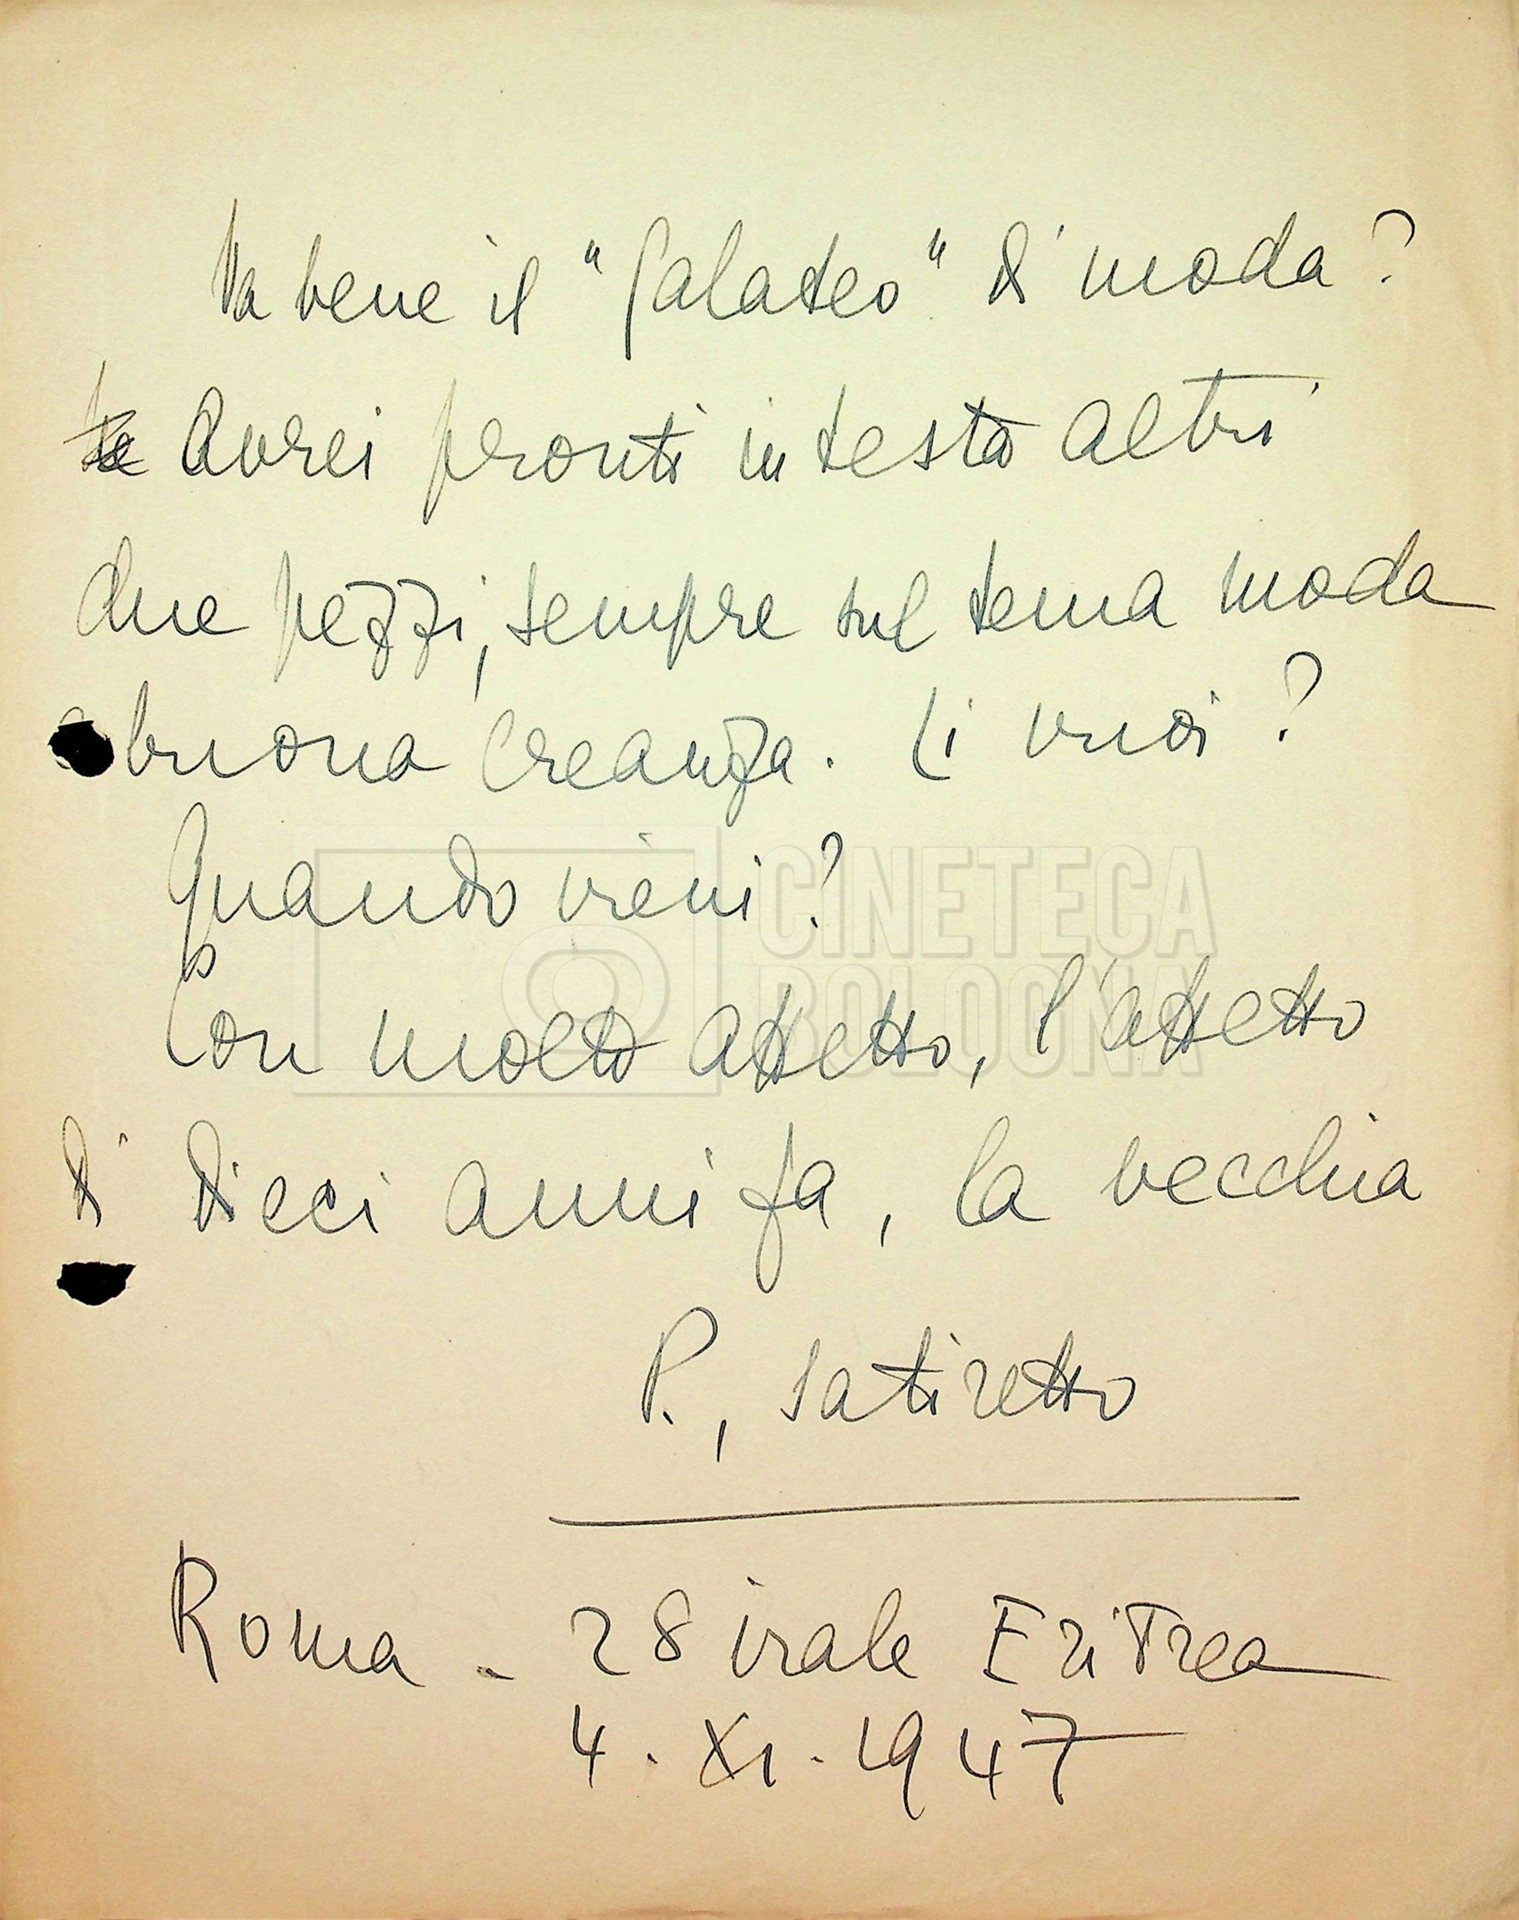 Va bene il "Galateo" di moda?
Avrei pronti in testa altri
due pezzi, sempre sul tema moda
e buona creanza. Li vuoi?
Quando vieni?
Con molto affetto, l'affetto
di dieci anni fa, la vecchia
P., satiretto
Roma - 28 viale Eritrea
4. XI. 1947
CINETECA
BOLOGNA